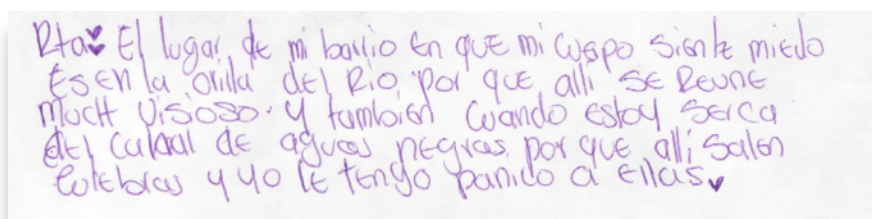 Rta: El lugar de mi barrio en que mi cuerpo siente miedo
es en la orilla del Rio, por que alli se Reune
much visioso. y tambien cuando estoy serca
del caÑal de aguas negras por que allí salen
culebras y yo le tengo panico a ellas